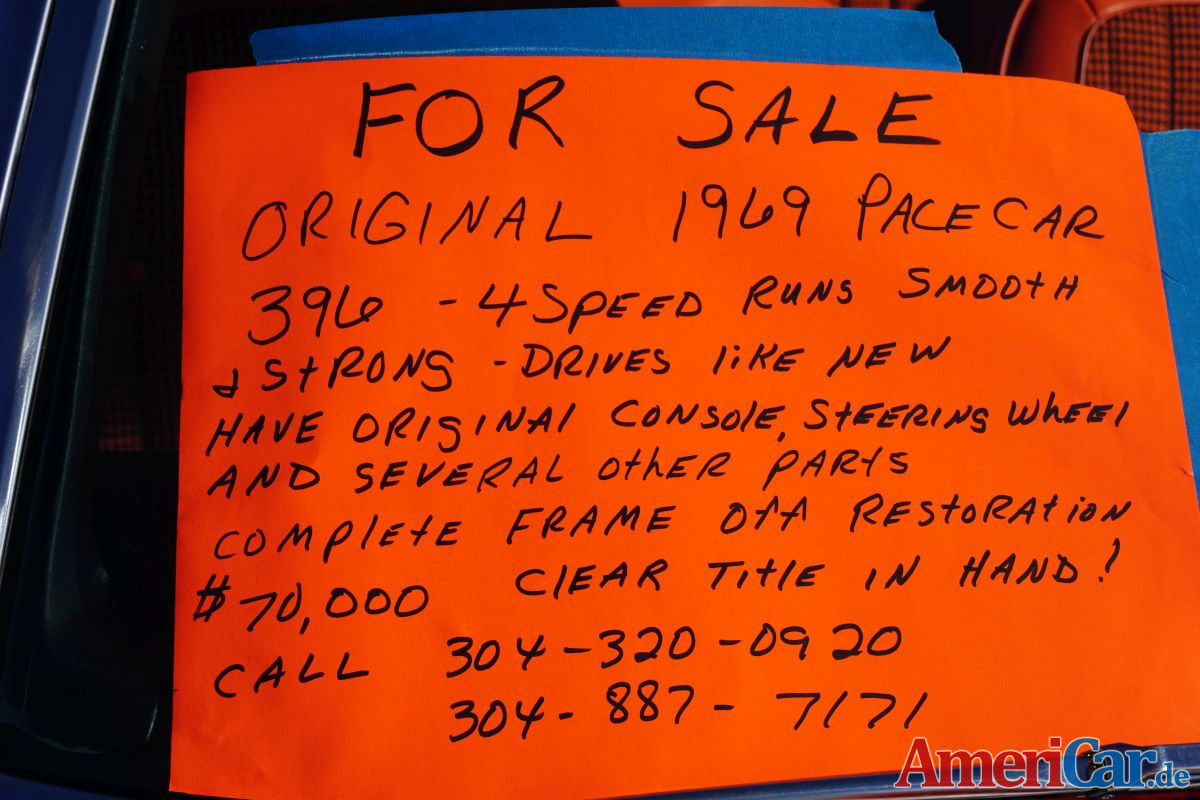 FOR SALE
ORIGINAL 1969 PACE CAR
396 - 4 SPEED RUNS SMOOTH
& STRONG - DRIVES LIKE NEW
HAVE ORIGINAL CONSOLE, STEERING WHEEL
AND SEVERAL OTHER PARTS
COMPLETE FRAME OFF RESTORATION
$70,000 CLEAR TITLE IN HAND!
CALL 304-320-0920
304-887-7171
AmeriCar.de